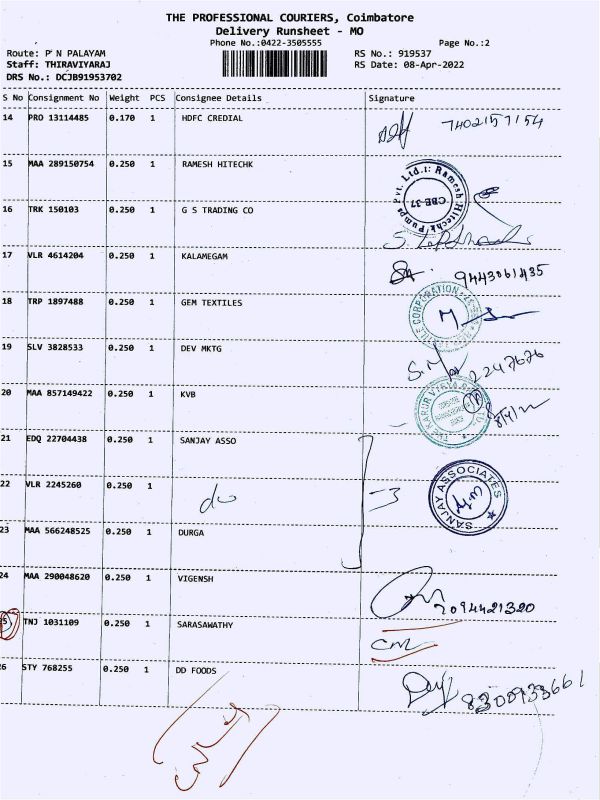 THE PROFESSIONAL COURIERS, Coimbatore
Delivery Runsheet - MO
Phone No.:0422-3505555 Page No.:2
Route: P N PALAYAM RS No.: 919537
Staff: THIRAVIYARAJ RS Date: 08-Apr-2022
DRS No.: DCJB91953702
S No Consignment No Weight PCS Consignee Details Signature
14 PRO 13114485 0.170 1 HDFC CREDIAL 7402157154
15 MAA 289150754 0.250 1 RAMESH HITECHK
Pvt. Ltd.: Ramesh Hitechk Pumps
CBE-37
16 TRK 150103 0.250 1 G S TRADING CO
17 VLR 4614204 0.250 1 KALAMEGAM 9443061435
18 TRP 1897488 0.250 1 GEM TEXTILES
19 SLV 3828533 0.250 1 DEV MKTG 2247676
20 MAA 857149422 0.250 1 KVB
THE KARUR VYSYA
8/4/22
21 EDQ 22704438 0.250 1 SANJAY ASSO
SANJAY ASSOCIATES
22 VLR 2245260 0.250 1 do -3
23 MAA 566248525 0.250 1 DURGA
24 MAA 290048620 0.250 1 VIGENSH 7094421320
25 TNJ 1031109 0.250 1 SARASAWATHY cm
26 STY 768255 0.250 1 DD FOODS 8300933661